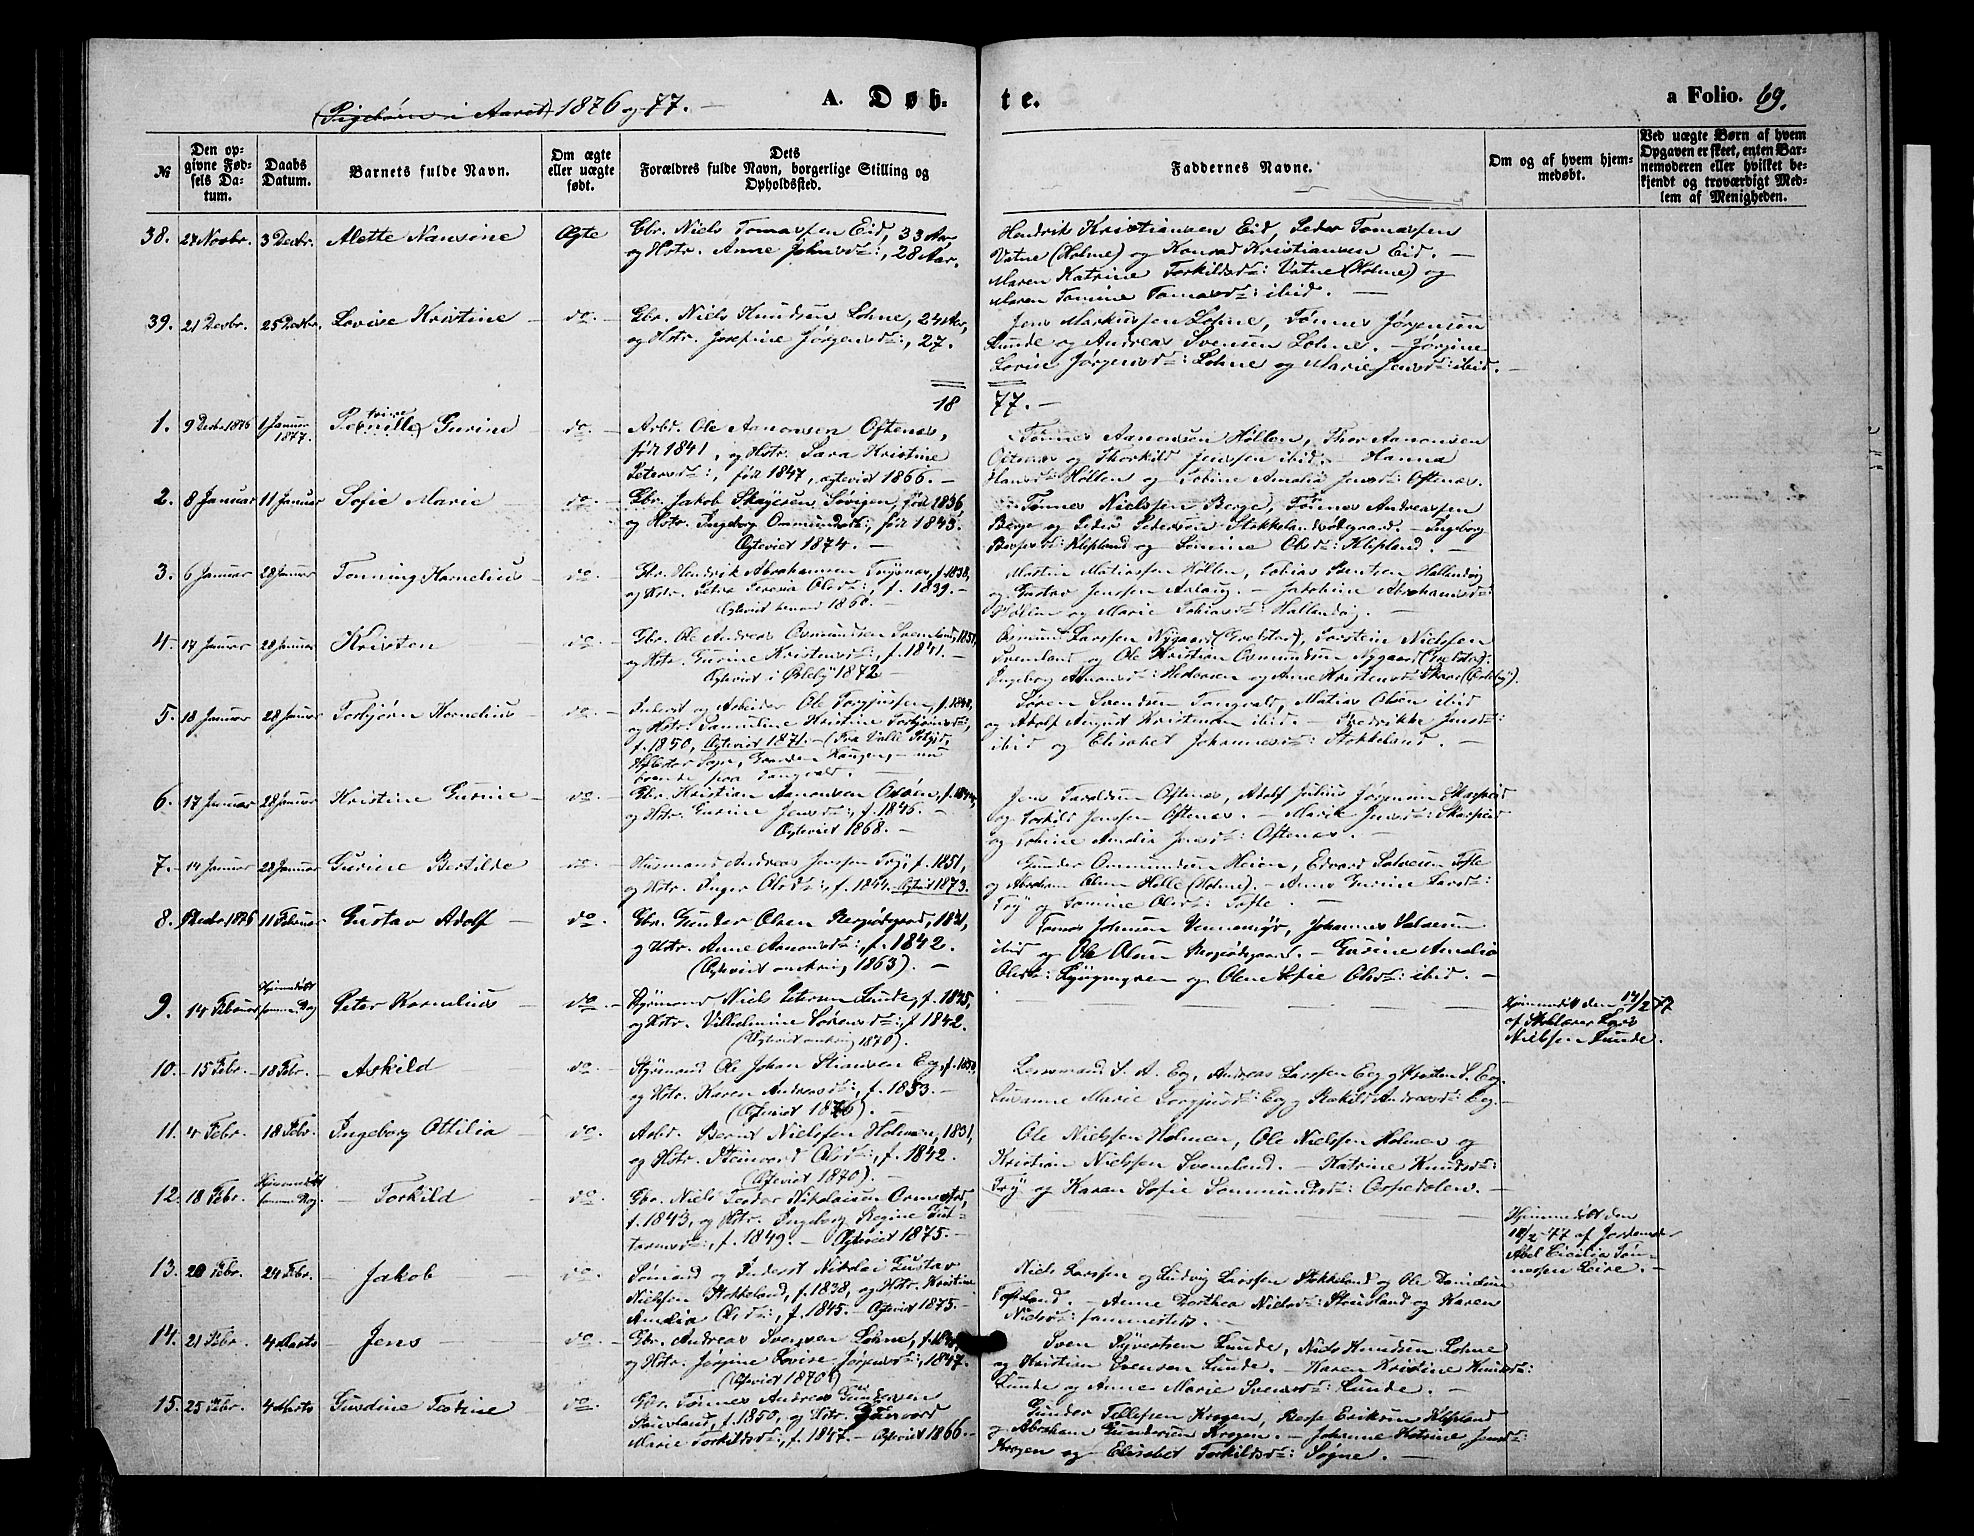 (Pigebørn i Aaret) 1876 og 77. —
A. Døb-
te.
a Folio. 69.
№
Den op-
givne Fød-
sels Da-
tum.
Daabs
Datum.
Barnets fulde Navn.
Om ægte
eller uægte
født.
Dets
Forældres fulde Navn, borgerlige Stilling og
Opholdssted.
Faddernes Navne.
Om og af hvem hjem-
medøbt.
Ved uægte Børn af hvem
Opgaven er skeet, enten Bar-
nemoderen eller hvilket be-
kjendt og troværdigt Med-
lem af Menigheden.
38. 27 Novbr. 3 Decbr. Alette Nansine Ægte
Gbr. Niels Tomassen Eid, 33 Aar
og Hstr. Anne Johnsdr:, 28 Aar.
Hendrik Kristiansen Eid, Peder Tomassen
Vatne (Holme) og Konrad Kristiansen Eid. —
Maren Katrine Torkildsdr: Vatne (Holme) og
Maren Tomine Tomasdr: ibid. —
39. 21 Decbr. 25 Decbr. Lovise Kristine — do —
Gbr. Niels Knudsen Lohne, 24 Aar,
og Hstr. Josefine Jørgensdr:, 27.
Jens Markussen Lohne, Tønnes Jørgensen
Lunde og Andreas Svensen Lohne. — Jørgine
Lovise Jørgensdr: Lohne og Marie Jensdr: ibid. —
18 77. —
1. 9 Decbr 1876 1 Januar 1877. Gurine do —
Arbd. Ole Aanonsen Oftenes,
født 1841, og Hstr. Sara Kristine
Petersdr:, født 1847, ægteviet 1866. —
Tønnes Aanonsen Höllen, Thor Aanonsen
Oftenes og Thorkild Jenssen ibid. — Hanna
Hansdr: Höllen og Tobine Amalia Jensdr: Oftenes.
2. 8 Januar 11 Januar Sofie Marie do —
Gbr. Jakob Søvigen, født 1836,
og Hstr. Ingeborg Osmundsdr:, født 1843.
Ægteviet 1874. —
Tønnes Nielssen Berge, Tønnes Andreassen
Berge og Peder Pedersen Stokkelandsødegaard. — Ingeborg
Klepland og Tomine Olsdr: Klepland. —
3. 6 Januar 28 Januar Tonning Kornelius — do —
Gbr. Hendrik Abrahamsen Trysnes, f. 1838,
og Hstr. Petra Teresia Olsdr:, f. 1839. —
Ægteviet 1860. —
Martin Matiassen Höllen, Tobias Bentsen Hallandvig
og Gustav Jenssen — Jakobine Abrahamsdr:
Höllen og Marie Tobiasdr: Hallandvig. —
4. 17 Januar 28 Januar Kristen — do —
Gbr. Ole Andreas Osmundsen
og Hstr. Gurine Kristensdr:, f. 1841. —
Ægteviet i Øslebø 1872 —
Osmund Larssen Nygaard (Greipstad), Torstein Nielssen
og Ole Kristian Osmundsen Nygaard (Greipstad).
Ingeborg Aanensdr: og Anne Kristensdr:
5. 18 Januar 28 Januar Torbjørn Kornelius — do —
Inderst og Arbeider Ole Torjussen,
og Hstr. Samuline Kristine Torbjørnsdr:,
f. 1850, Ægteviet 1871. — (Fra Valle
nu
boende paa Tangvald. —
Søren Svendsen Tangvald, Matias Olsen ibid
og Adolf August Kristensen ibid. — Fredrikke Jensdr:
ibid og Elisabet Johannesdr: Stokkeland. —
6. 17 Januar 28 Januar Kristine Gurine — do —
Gbr. Kristian Aanonsen
og Hstr. Gurine Jensdr:, f. 1846. —
Ægteviet 1868. —
Jens Taraldsen Oftenes, Adolf Julius Jørgensen Skarpeid
og Torkild Jenssen Oftenes. — Jensdr: Skarpeid
og Tobine Amalia Jensdr: Oftenes. —
7. — 14 Januar 28 Januar Gurine Bertilde do —
Husmand Andreas Jenssen Try, f. 1851,
og Hstr. Inger Olsdr:, f. 1844. Ægteviet 1873.
Gunder Osmundsen Heien, Edvard Salvesen Tofte
og Abraham Olsen Holle (Holme). — Anne Gurine Larsdr:
Try og Tomine Olsdr: Tofte. —
8. 9 Decbr 1876 11 Februar Gustav Adolf — do —
Gbr. Gunder Olsen 1831,
og Hstr. Anne Aanonsdr:, f. 1842. —
(Ægteviet omkring 1863). —
Tomas Johnsen Vennemyr, Johannes Salvesen
ibid og Ole Olsen — Gurine Amalia
Olsdr: og Oline Sofie Olsdr: ibid. —
9. 14 Februar Hjemmedøbt samme Dag Peter Kornelius — do —
Styrmand Niels Petersen Lunde, f. 1845,
og Hstr. Vilhelmine Sørensdr: f. 1842.
(Ægteviet omkring 1870).
Hjemmedøbt den 14/2 77
af Skolelærer Lars
Nielssen Lunde.
10. — 15 Febr. — 18 Febr. — Askild do —
Styrmand Ole Johan Stiansen Eeg,
og Hstr. Karen Andreasdr:, f. 1853. —
(Ægteviet 1876). —
Lensmand S. A. Eeg, Andreas Larssen Eeg og Kristen S. Eeg.
Susanne Marie Torjusdr: Eeg og Andreasdr: Eeg —
11. — 4 Febr. 18 Febr. — Ingeborg Ottilia — do —
Arbd. Bernt Nielssen Holmen, 1831,
og Hstr. Steinvord Olsdr:, f. 1842.
(Ægteviet 1870). —
Ole Nielssen Holmen, Ole Nielssen Holmen og
Kristian Nielssen — Katrine Knudsdr:
Try og Karen Sofie Sommundsdr: Ospedalen. —
12. 18 Febr. Hjemmedøbt samme Dag — Torkild — do —
Gbr. Niels Teodor Nikolaisen
f. 1843, og Hstr. Ingeborg Regine
f. 1849. — Ægteviet 1875. —
Hjemmedøbt den
18/2 - 77 af Jordemoder
Abel Cicilia Tøn-
nessen Leire. —
13. 20 Febr. 24 Febr. Jakob — do —
Sømand og Inderst Nikolai Gustav
Nielssen Stokkeland, f. 1838, og Hstr. Kristine
Amalia Olsdr:, f. 1845. — Ægteviet 1875. —
Niels Larssen og Ludvig Larssen Stokkeland og Ole Danielsen
— Anne Dorthea Nielsdr: og Karen
Nielsdr: sammesteds. —
14. 21 Febr. 4 Marts — Jens do —
Gbr. Andreas Svensen Lohne,
og Hstr. Jørgine Lovise Jørgensdr:, 1847.
(Ægteviet 1870) —
Sven Syvertsen Lunde, Niels Knudsen Lohne
og Kristian Svensen Lunde. — Karen Kristine Knudsdr:
Lunde og Anne Marie Svensdr: Lunde. —
15. 25 Febr. 4 Marts Gurdine Teodine do —
Gbr. Tønnes Andreas Gundersen
f. 1850, og Hstr.
Marie Torkildsdr:, f. 1847. — Ægteviet 1866. —
Gunder Tellefsen Krogen, Berse Eriksen Klepland
og Abraham Gundersen Krogen. — Johanne Katrine Jensdr:
Krogen og Elisabet Torkildsdr: Søgne. —